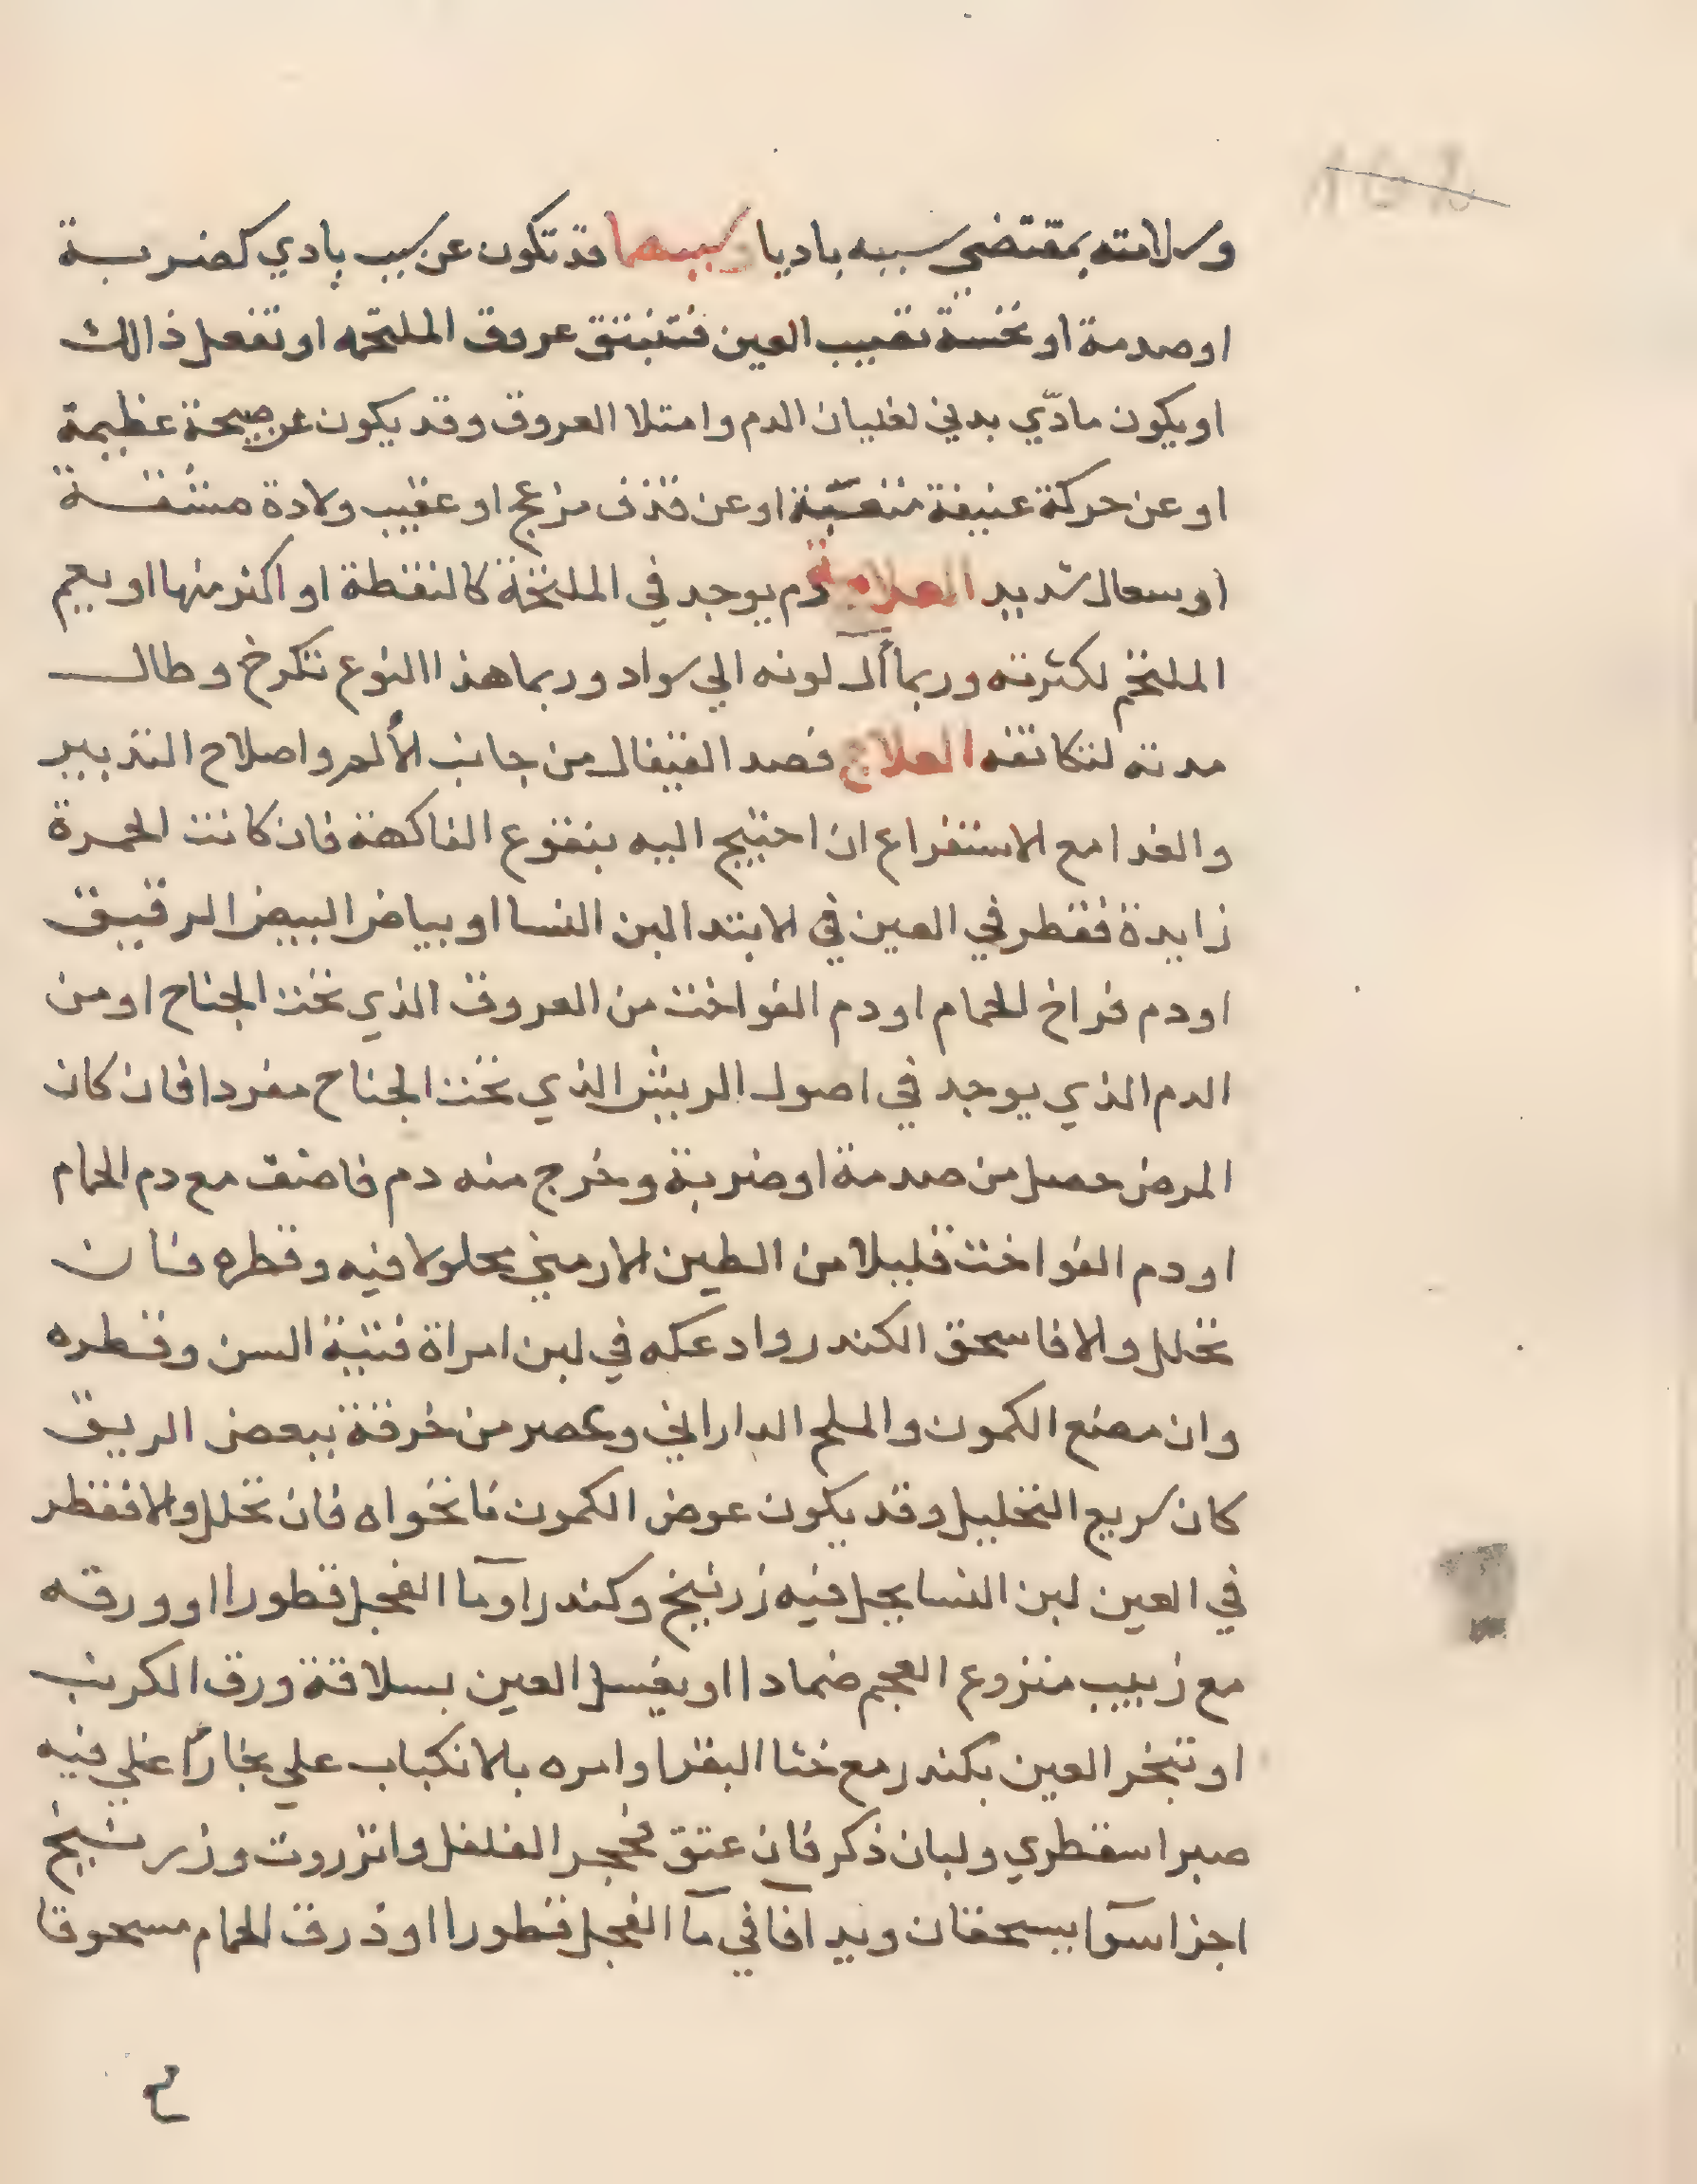 وسلامته بمقتضي سببه باديا وسببها قد تكون عن سبب بادي كضربة
او صدمة او نخسة تصيب العين فتنبثق عروق الملتحمه او تفعل ذالك
او يكون مادّي بدني لغليان الدم وامتلا العروق وقد يكون عن صيحة عظيمة
او عن حركة عنيفة متعبّة او عن قذف مزعج او عقيب ولادة مشقة
او سعال شديد العلامة دم يوجد في الملتحمة كالنقطة او اكثر منها او يعم
الملتحم لكثرته وربما أل لونه الي سواد وربما هذا النوع تكرخ وطال
مدته لتكاثفه العلاج فصد القيفال من جانب الألم واصلاح التدبير
والغدا مع الاستفراع ان احتيج اليه بنقوع الفاكهة فان كانت الحمرة
زايدة فقطر في العين في الابتدا لبن النسا او بياض البيض الرقيق
او دم فراخ الحمام او دم الفواخت من العروق الذي تحت الجناح او من
الدم الذي يوجد في اصول الريش الذي تحت الجناح مفردا فان كان
المرض حصل من صدمة او ضربة وخرج منه دم فاضف مع دم الحمام
او دم الفواخت قليلا من الطين الارميني محلولا فيه وقطره فان
تحلل والا فاسحق الكندر وادعكه في لبن امراة فتية السن وقطره
وان مضغ الكمون والملح الداراني وعصر من خرقة ببعض الريق
كان سريع التحليل وقد يكون عوض الكمون نانخواه فان تحلل والا فقطر
في العين لبن النسا يحل فيه زرنيخ وكندر او مآ الفجل قطورا او ورقه
مع زبيب منزوع العجم ضمادا او يغسل العين بسلاقة ورق الكرنب
او تبخر العين بكندر مع خثا البقر او امره بالانكباب علي بخار اغلي فيه
صبر اسقطري ولبان ذكر فان عتق فحجر الفلفل وانزروت وزرنيخ
اجزا سوآ يسحقان ويدافا في مآ الفجل قطورا او ذرق الحمام مسحوقا